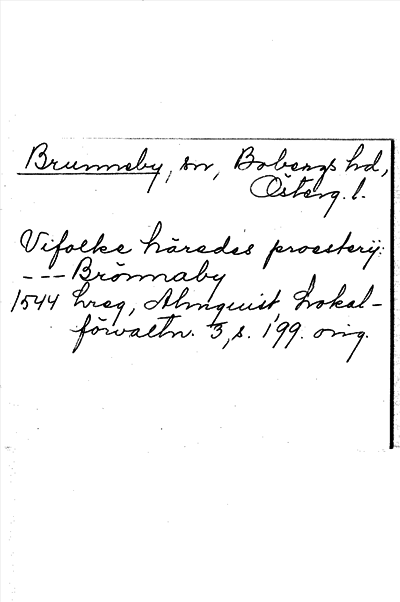 Brunneby, sn, Bobergs hd,
Österg. l.
Vifolke häredes proesterij:
--- Brönnaby
1544 Lreg, Almquist Lokal-
förvaltn. 3, s. 199. orig.